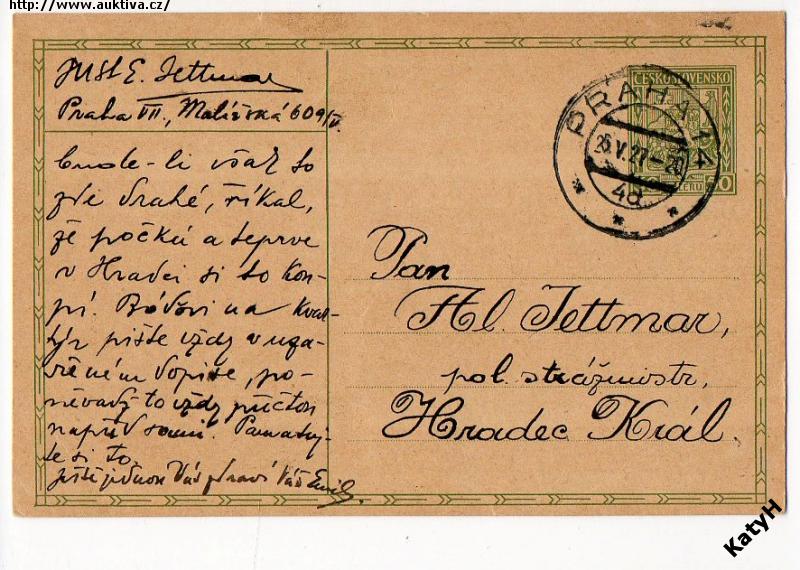 http://www.auktiva.cz/
JUSt E. Jettmar
Praha VII., Malířská 609/V.
bude-li však to
zde drahé, říkal,
že počká a teprve
v Hradci si to kou-
pí. Bóďovi na Kvar-
týr pište vždy v uza-
vřeném dopise, po-
něvadž to vždy přečtou
napřed sami. Pamatuj-
te si to.
Ještě jednou Vás zdraví Váš Emil.
ČESKOSLOVENSKO
PRAHA 14
25.V.27-20
4d
50 50
Pan
Al. Jettmar,
pol. strážmistr,
Hradec Král.
KatyH